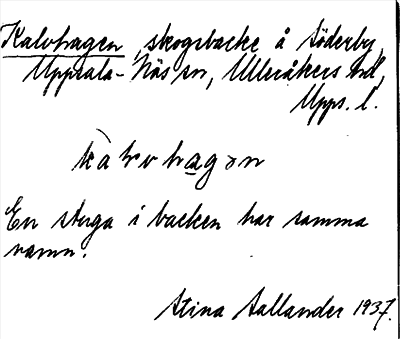 Kalvhagen, skogsbacke å Söderby,
Uppsala-Näs sn, Ulleråkers hd,
Upps. l.
En stuga i backen har samma
namn.
Stina Sallander 1937.